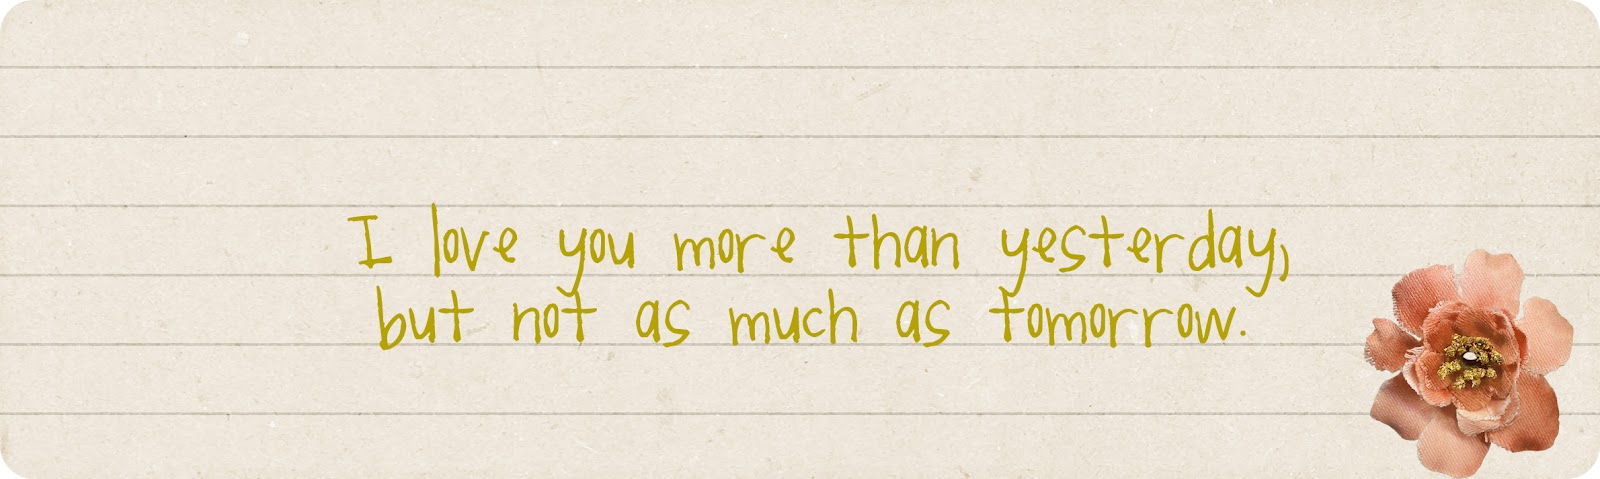 I love you more than yesterday,
but not as much as tomorrow.